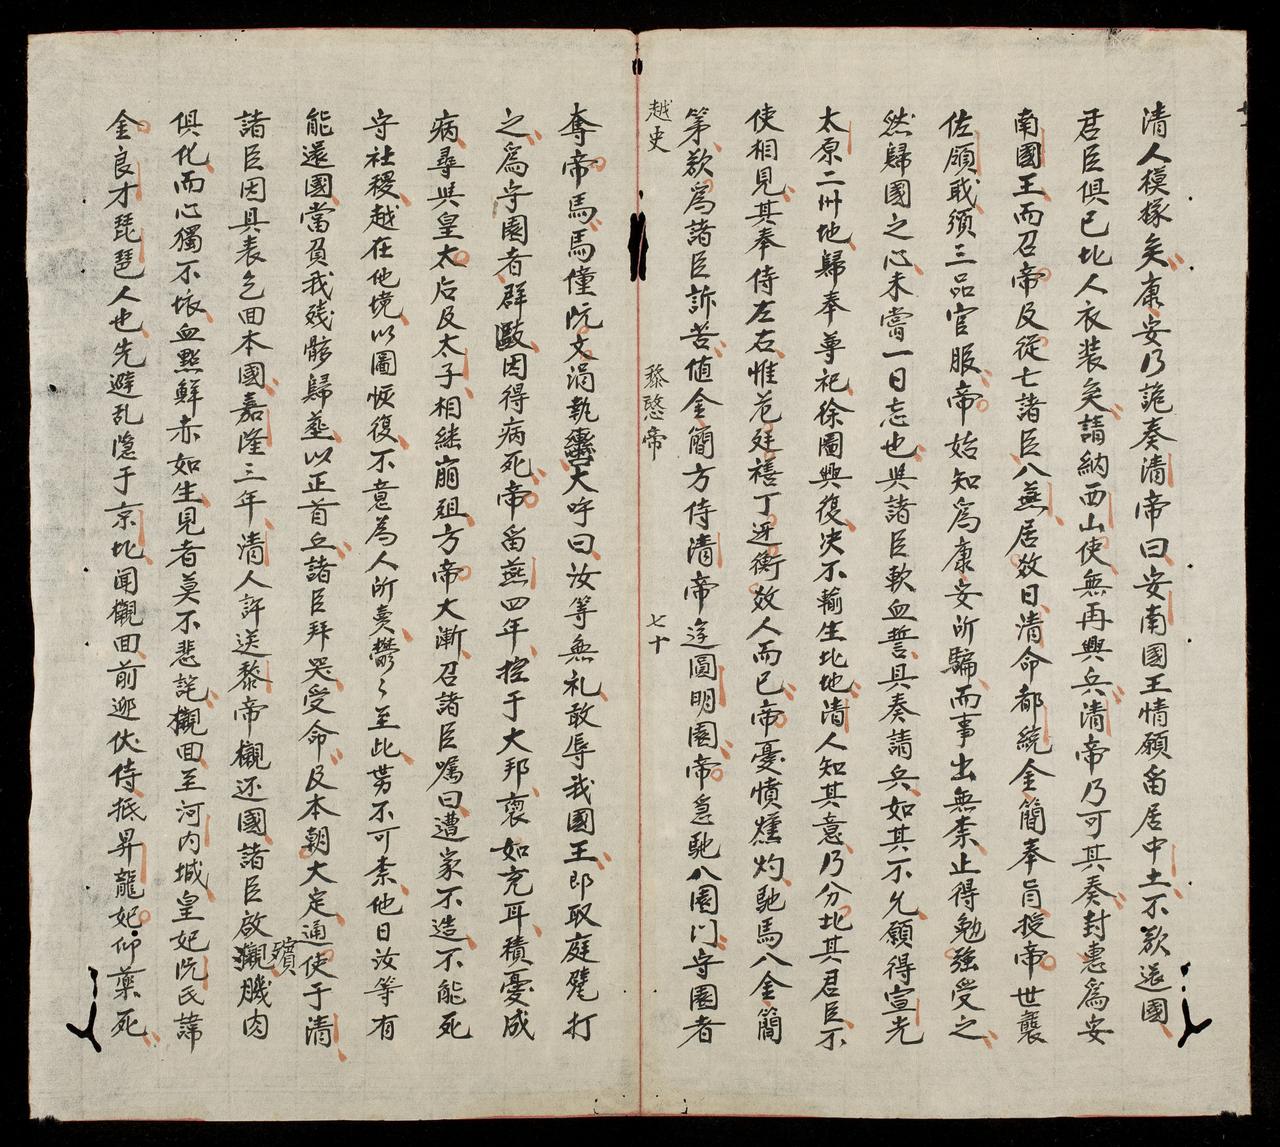 清人模樣矣康安乃詭奏清帝曰安南國王情願畱居中土不欲還國
君臣俱已北人衣裝矣請納西山使無再興兵清帝乃可其奏封惠爲安
南國王而召帝及從亡諸臣入燕居数日清命都統金簡奉旨授帝世襲
佐領戢須三品官服帝始知爲康安所騙而事出無柰止得勉强受之
然歸國之心未嘗一日忘也與諸臣歃血誓具奏請兵如其不允願得宣光
太原二州地歸奉尊祀徐圖興復决不輸生北地清人知其意乃分北其君臣不
使相見其奉侍左右惟范廷禧丁迓衡数人而已帝憂憤燻灼馳馬入金簡
第欲爲諸臣訴苦値金簡方侍清帝遊圓明園帝急馳入園门守園者
越史
黎愍帝
七十
奪帝馬馬僮阮文涓執轡大呼曰汝等無礼敢辱我國王郎取庭甓打
之爲守園者群毆因得病死帝畱燕四年控于大邦褎如充耳積憂成
病尋與皇太后及太子相継崩殂方帝大漸召諸臣嘱曰遭家不造不能死
守社稷越在他境以圖恢復不意為人所賣鬱〻至此勢不可柰他日汝等有
能還國當負我残骸歸塟以正首丘諸臣拜哭受命及本朝大定通使于清
諸臣因具表乞回本國嘉隆三年清人許送黎帝櫬还國諸臣啟櫬殯肌肉
俱化而心獨不壊血點鮮赤如生見者莫不悲詫櫬回至河内城皇妃阮氏諱
金良才琵琶人也先避乱隱于京北闻櫬回前迎伏侍抵昇龍妃仰藥死